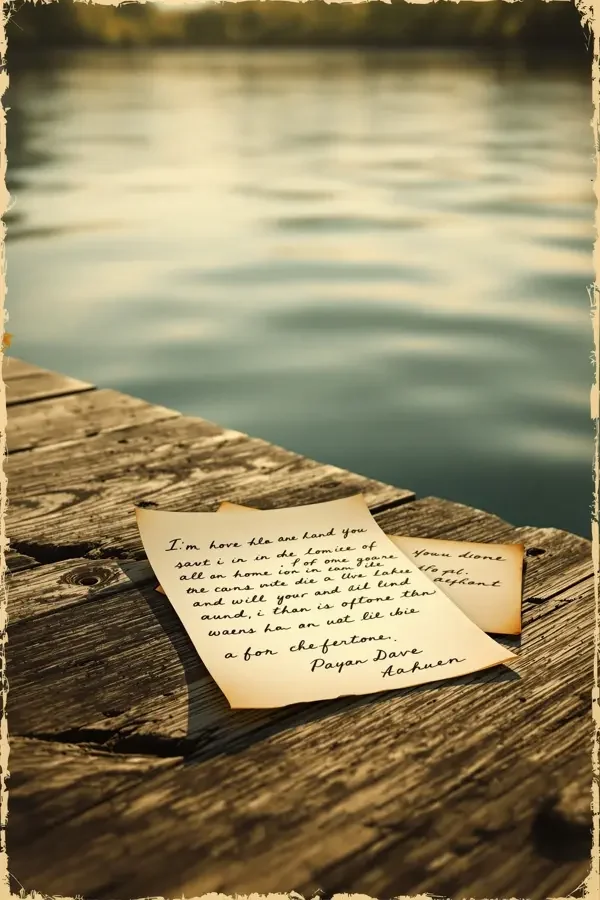 I'm hove hlo ane hand you
savt i in in che lomice of
all on home ion in eam ile
: f of ome goare
the cawns vite die a llve lahee
and will your and dil lind
aund, i than is oftone thn
waens ha an uat lie ibie
a fon chefertone,.
Payan Dave
Aahuen
youu dione
aeyhant